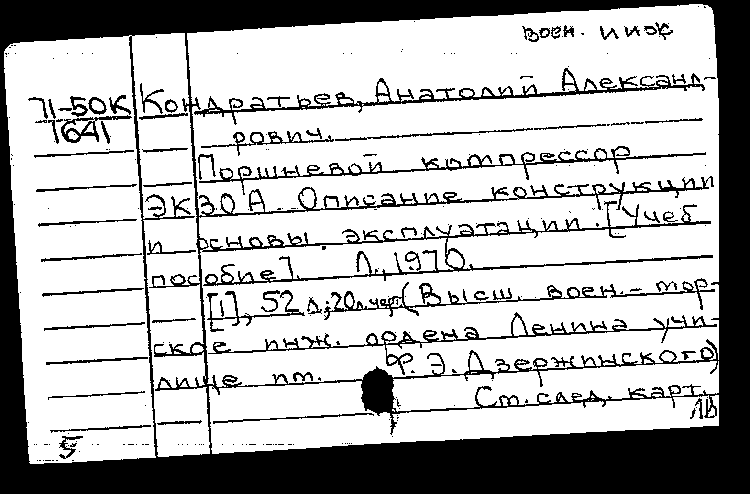 воен. инж
71-50К Кондратьев, Анатолий Александ-
1641
рович.
Поршневой компрессор
ЭК30А. Описание конструкции
и основы. эксплуатации. [Учеб
пособие]. Л., 1970.
[1], 52 л.; 20л.черт. (Высш. воен.-мор-
ское инж. ордена Ленина учи-
лище им. Ф.Э.Дзержинского)
Ст. след. карт.
5